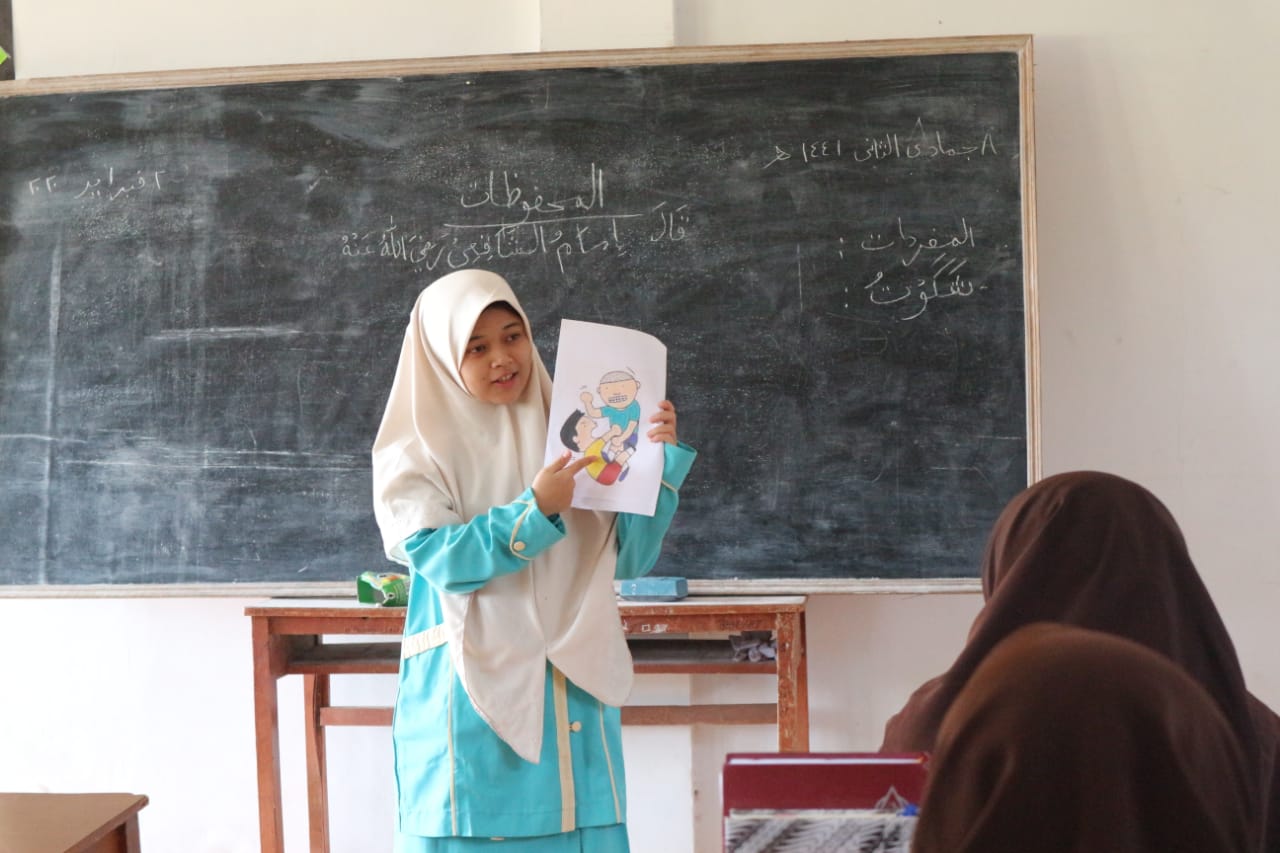 ٨ جمادى الثانى ١٤٤١ ھ
٢ فبراير ٢٠٢٠
المحفوظات
قَالَ إِمَامُ الشَّافِعِىْ رَضِيَ اللّٰهُ عَنْهُ
المفردات :
سَكَوْتُ :